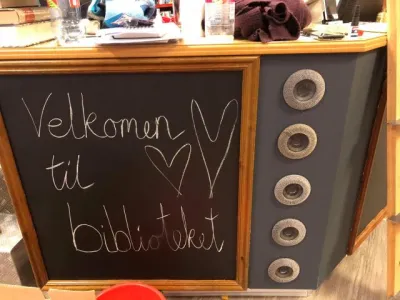 Velkomen
til
biblioteket